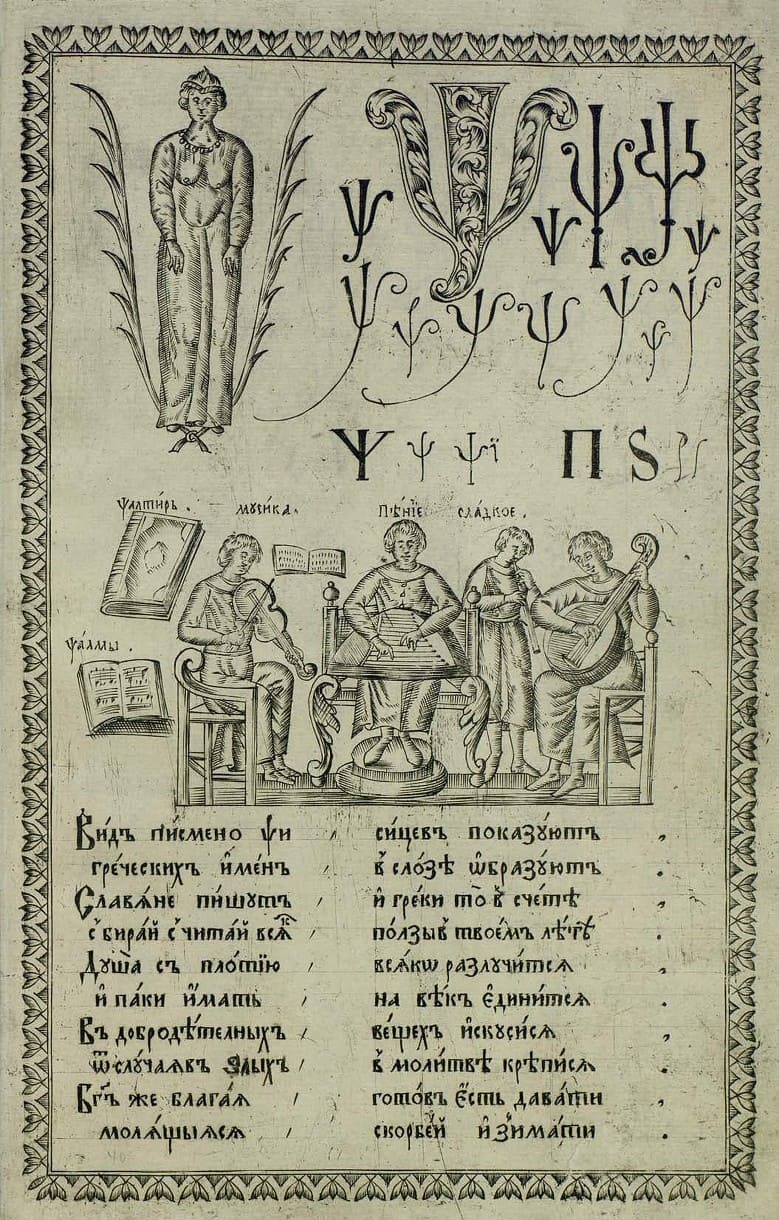 Ѱ Ѱ Ѱ Ѱ Ѱ Ѱ
Ѱ Ѱ Ѱ Ѱ Ѱ Ѱ Ѱ
Ѱ ѱ ѱї П Ѕ
ѱалтирь . мусїка . Пѣнїе сла́дкое .
ѱалмы .
Ви́дъ пи́смено ѱи , си́цевъ показу́ютъ ,
гре́ческихъ и҆ме́нъ , в̾ сло́зѣ ѡ҆бразу́ютъ .
Славѧ́не пи́шутъ , и҆ гре́ки то̀ в̾ сче́тѣ ,
с̾бира́й с̾чита́й всѧ̑к , по́лзы в̾ твое́мъ лѣ́тѣ .
Душа̀ съ пло́тїю , всѧ́кѡ разлучи́тсѧ ,
и҆ па́ки и҆́мать , на вѣ́къ є҆дини́тсѧ .
Въ добродѣ́телныхъ , ве́щехъ и҆скуси́сѧ ,
ѿ слу́чаѧвъ ѕлы́хъ , в̾ моли́твѣ крѣпи́сѧ .
Бг҃ъ же блага́ѧ , гото́въ є҆́сть дава́ти ,
молѧ́щыѧсѧ , скорбе́й и҆зима́ти .